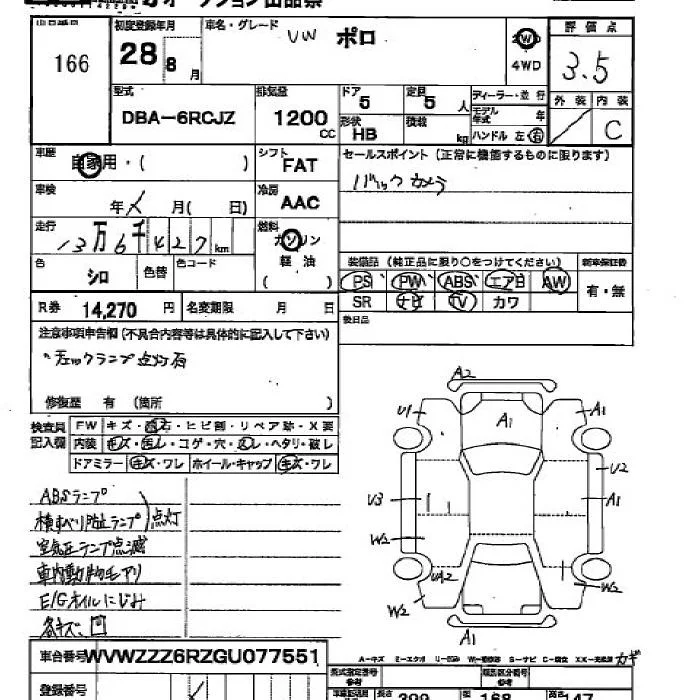 166
初度登録年月
28 8 月
車名・グレード
VW ポロ
2WD
4WD
評価点
3.5
外装 内装
C
型式
DBA-6RCJZ
排気量
1200 CC
ドア
5
形状
HB
定員
5 人
積載
kg
ディーラー・並行
モデル年式 年
ハンドル 左 右
車歴
自家用・( )
シフト
FAT
セールスポイント (正常に機能するものに限ります)
バックカメラ
車検
年 月( 日)
冷房
AAC
走行
13万6千427km
燃料
ガソリン
軽油
( )
色
シロ
色替
色コード
装備品 (純正品に限り○をつけてください) 新車保証書
PS PW ABS エアB AW
SR ナビ TV カワ
有・無
R券 14,270 円
名変期限 月 日
後日品
注意事項申告欄 (不具合内容等は具体的に記入して下さい)
チェックランプ点灯有
修復歴 有 (箇所 )
検査員記入欄
FW キズ・飛石・ヒビ割・リペア跡・X要
内装 キズ・汚レ・コゲ・穴・スレ・ヘタリ・破レ
ドアミラー キズ・ワレ ホイール・キャップ キズ・ワレ
ABSランプ
横すべり防止ランプ 点灯
空気圧ランプ点滅
車内動物毛アリ
E/Gオイルにじみ
各キズ、凹
A2
U1
A1
A1
U2
U3
A1
W2
UA2
W2
W2
A1
車台番号 WVWZZZ6RZGU077551
登録番号
A-キズ E-エクボ U-凹み W-補修跡 S-サビ C-腐食 XX-交換済 カギ
型式指定番号
類別区分番号
長さ 399
幅 168
高 147